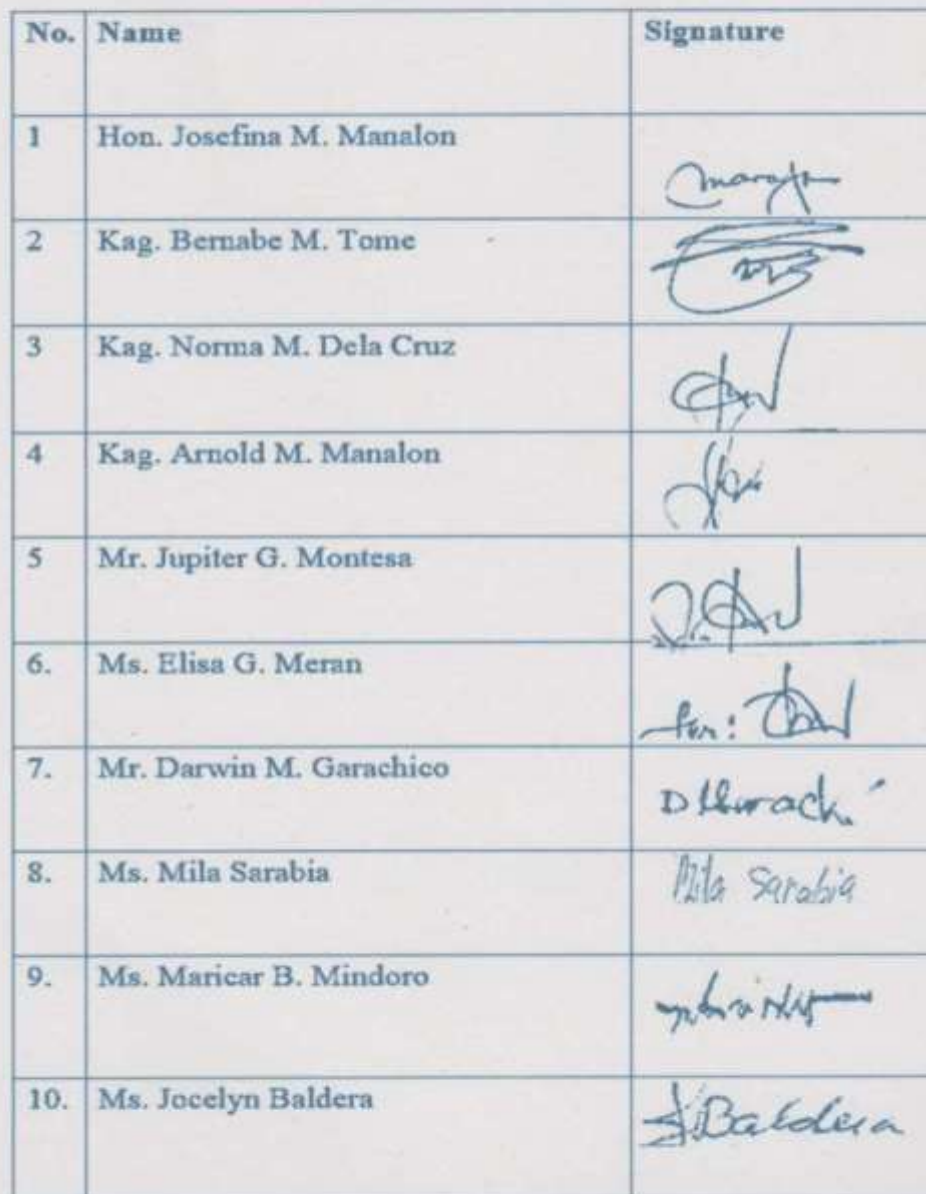 No. Name Signature
1 Hon. Josefina M. Manalon
2 Kag. Bernabe M. Tome
3 Kag. Norma M. Dela Cruz
4 Kag. Arnold M. Manalon
5 Mr. Jupiter G. Montesa
6. Ms. Elisa G. Meran
7. Mr. Darwin M. Garachico
8. Ms. Mila Sarabia Mila Sarabia
9. Ms. Maricar B. Mindoro
10. Ms. Jocelyn Baldera Baldera